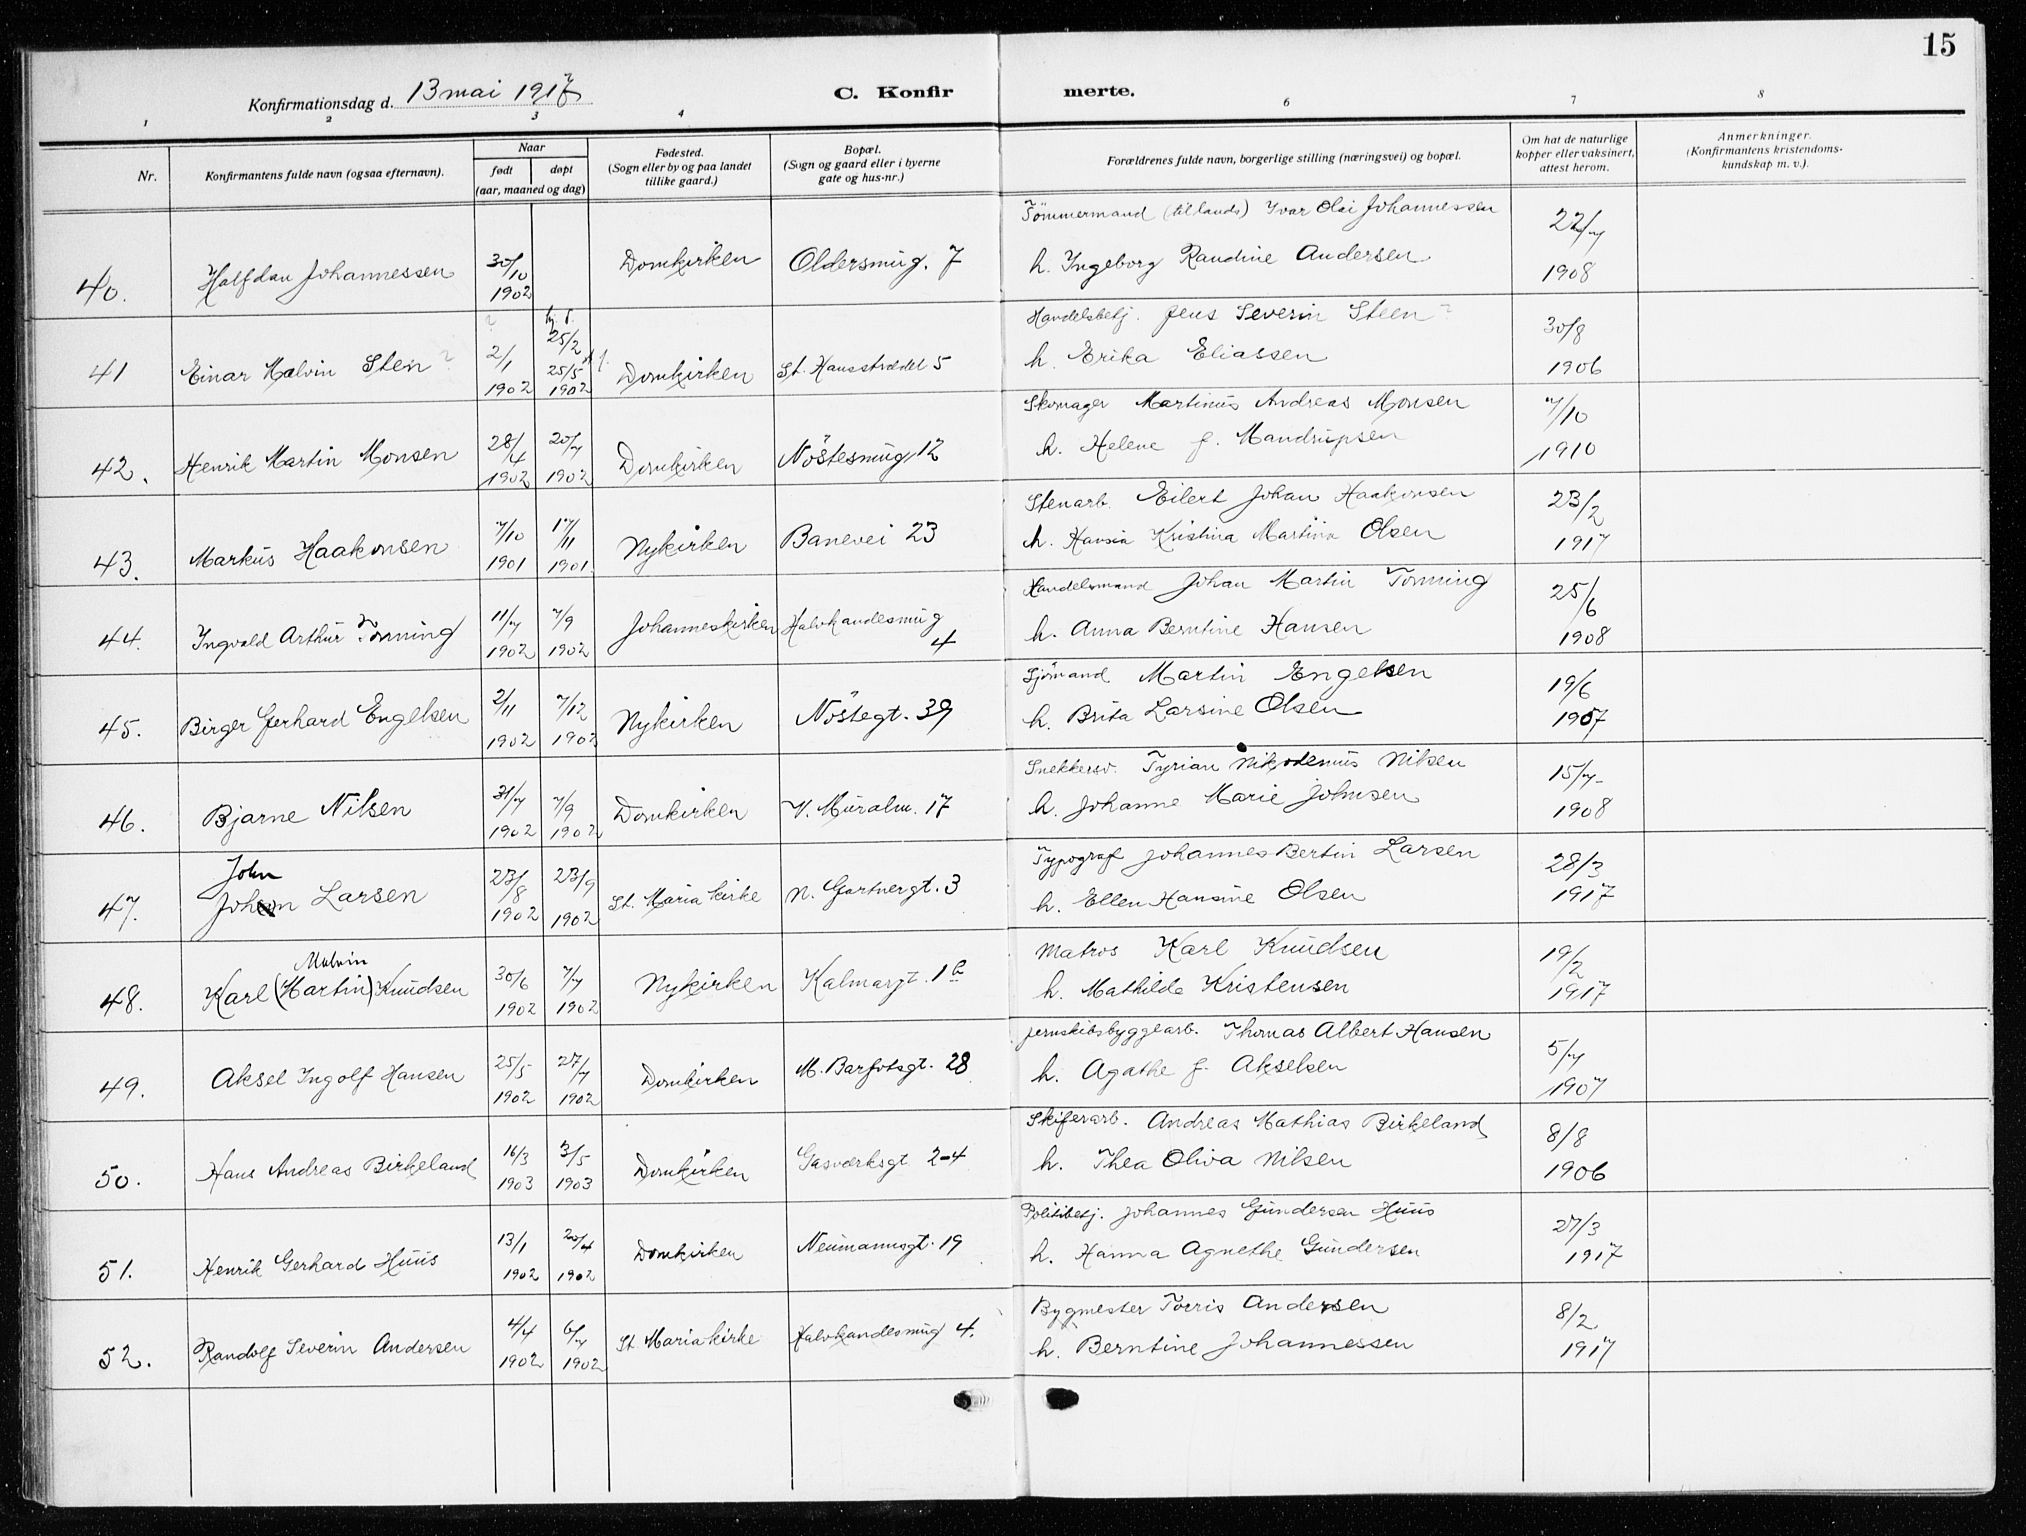 15
Konfirmationsdag d. 13 mai 1917
C. Konfirmerte.
1 2 3 4 6 7 8
Nr.
Konfirmantens fulde navn (ogsaa efternavn).
Naar
født døpt
(aar, maaned og dag)
Fødested.
(Sogn eller by og paa landet
tillike gaard.)
Bopæl.
(Sogn og gaard eller i byerne
gate og hus-nr.)
Forældrenes fulde navn, borgerlige stilling (næringsvei) og bopæl.
Om hat de naturlige
kopper eller vaksinert,
attest herom.
Anmerkninger.
(Konfirmantens kristendoms-
kundskap m. v.).
40. Halfdan Johannessen 30/10 1902 Domkirken Oldersmug. 7
Tömmermand (tillands) Ivar Olai Johannessen
h. Ingeborg Randine Andersen
22/7 1908
41 Einar Malvin Sten ? ? 2/1 1902 25/2 25/5 1902 Domkirken St. Hansstrædet 5
Handelsbetj. Jens Severin Steen ?
h. Erika Eliassen
30/8 1906
42. Henrik Martin Monsen 28/4 1902 20/7 1902 Domkirken Nöstesmug 12
Skomager Martinus Andreas Monsen
h. Helene f. Mandrupsen
7/10 1910
43. Markus Haakonsen 7/10 1901 17/11 1901 Nykirken Banevei 23
Stenarb. Eilert Johan Haakonsen
h. Hansia Kristina Martina Olsen
23/2 1917
44. Ingvald Arthur Tonning 11/7 1902 7/9 1902 Johanneskirken Halvkandesmug 4
Handelsmand Johan Martin Tonning
h. Anna Berntine Hansen
25/6 1908
45. Birger Gerhard Engelsen 2/11 1902 7/12 1902 Nykirken Nöstegt. 39
Sjömand Martin Engelsen
h. Brita Larsine Olsen
19/6 1907
46. Bjarne Nilsen 31/7 1902 7/9 1902 Domkirken V. Muralm. 17
Snekkersv. Tyrian Nikodemus Nilsen
h. Johanne Marie Johnsen
15/7 1908
John
47. Johan Larsen 23/8 1902 23/9 1902 St. Maria kirke N. Gartnergt. 3
Typograf Johannes Bertin Larsen
h. Ellen Hansine Olsen
28/3 1917
Malvin
48. Karl (Martin) Knudsen 30/6 1902 7/7 1902 Nykirken Kalmargt. 1 b
Matros Karl Knudsen
h. Mathilde Kristensen
19/2 1917
49. Aksel Ingolf Hansen 25/5 1902 27/7 1902 Domkirken M. Barfotsgt. 28
Jernskibsbyggearb. Thomas Albert Hansen
h. Agathe f. Akselsen
5/7 1907
50. Hans Andreas Birkeland 16/3 1903 3/5 1903 Domkirken Gasværksgt 2-4
Skiferarb. Andreas Mathias Birkeland
h. Thea Oliva Nilsen
8/8 1906
51. Henrik Gerhard Huus 13/1 1902 20/4 1902 Domkirken Neumannsgt. 19
Politibetj. Johannes Gundersen Huus
h. Hanna Agnethe Gundersen
27/3 1917
52. Randolf Severin Andersen 4/4 1902 6/7 1902 St Mariakirke Halvkandesmug 4.
Bygmester Torris Andersen
h. Berntine Johannessen
8/2 1917